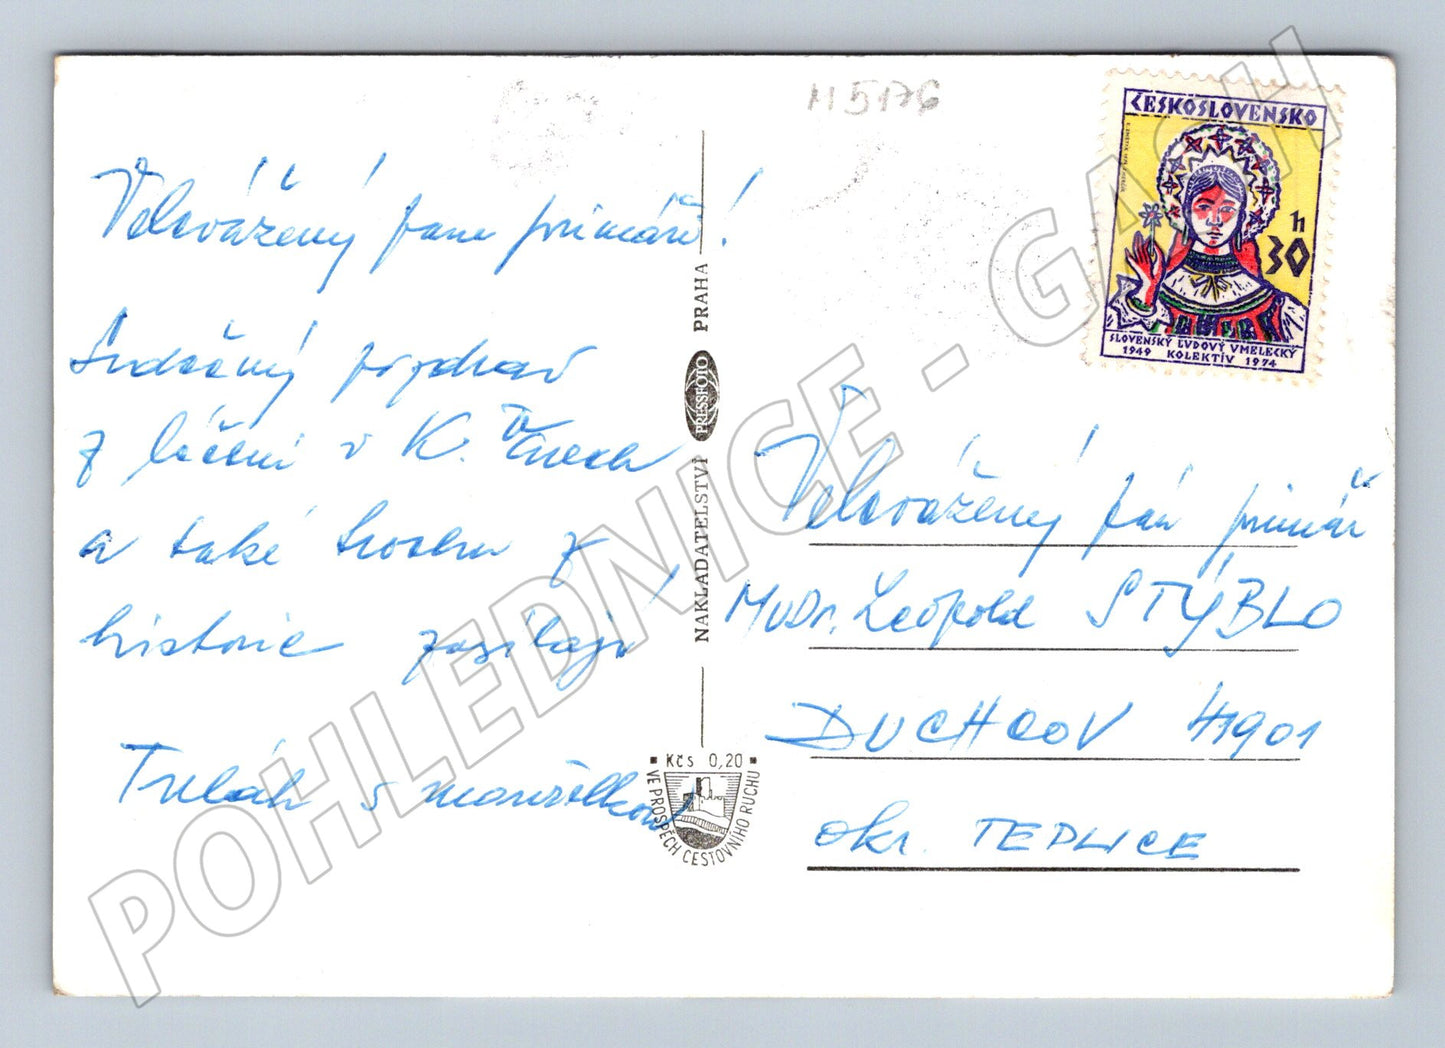 M5176
Velevážený pane primáři!
Srdečný pozdrav
z léčení v K. Varech
a také trochu z
historie zasílají
s manželkou
NAKLADATELSTVÍ PRESSFOTO PRAHA
Kčs 0,20
VE PROSPĚCH CESTOVNÍHO RUCHU
ČESKOSLOVENSKO
30 h
SLOVENSKÝ ĽUDOVÝ UMELECKÝ
1949 KOLEKTÍV 1974
Velevážený pán primář
MUDr. Leopold STÝBLO
DUCHCOV 41901
okr. TEPLICE
POHLEDNICE - GASH